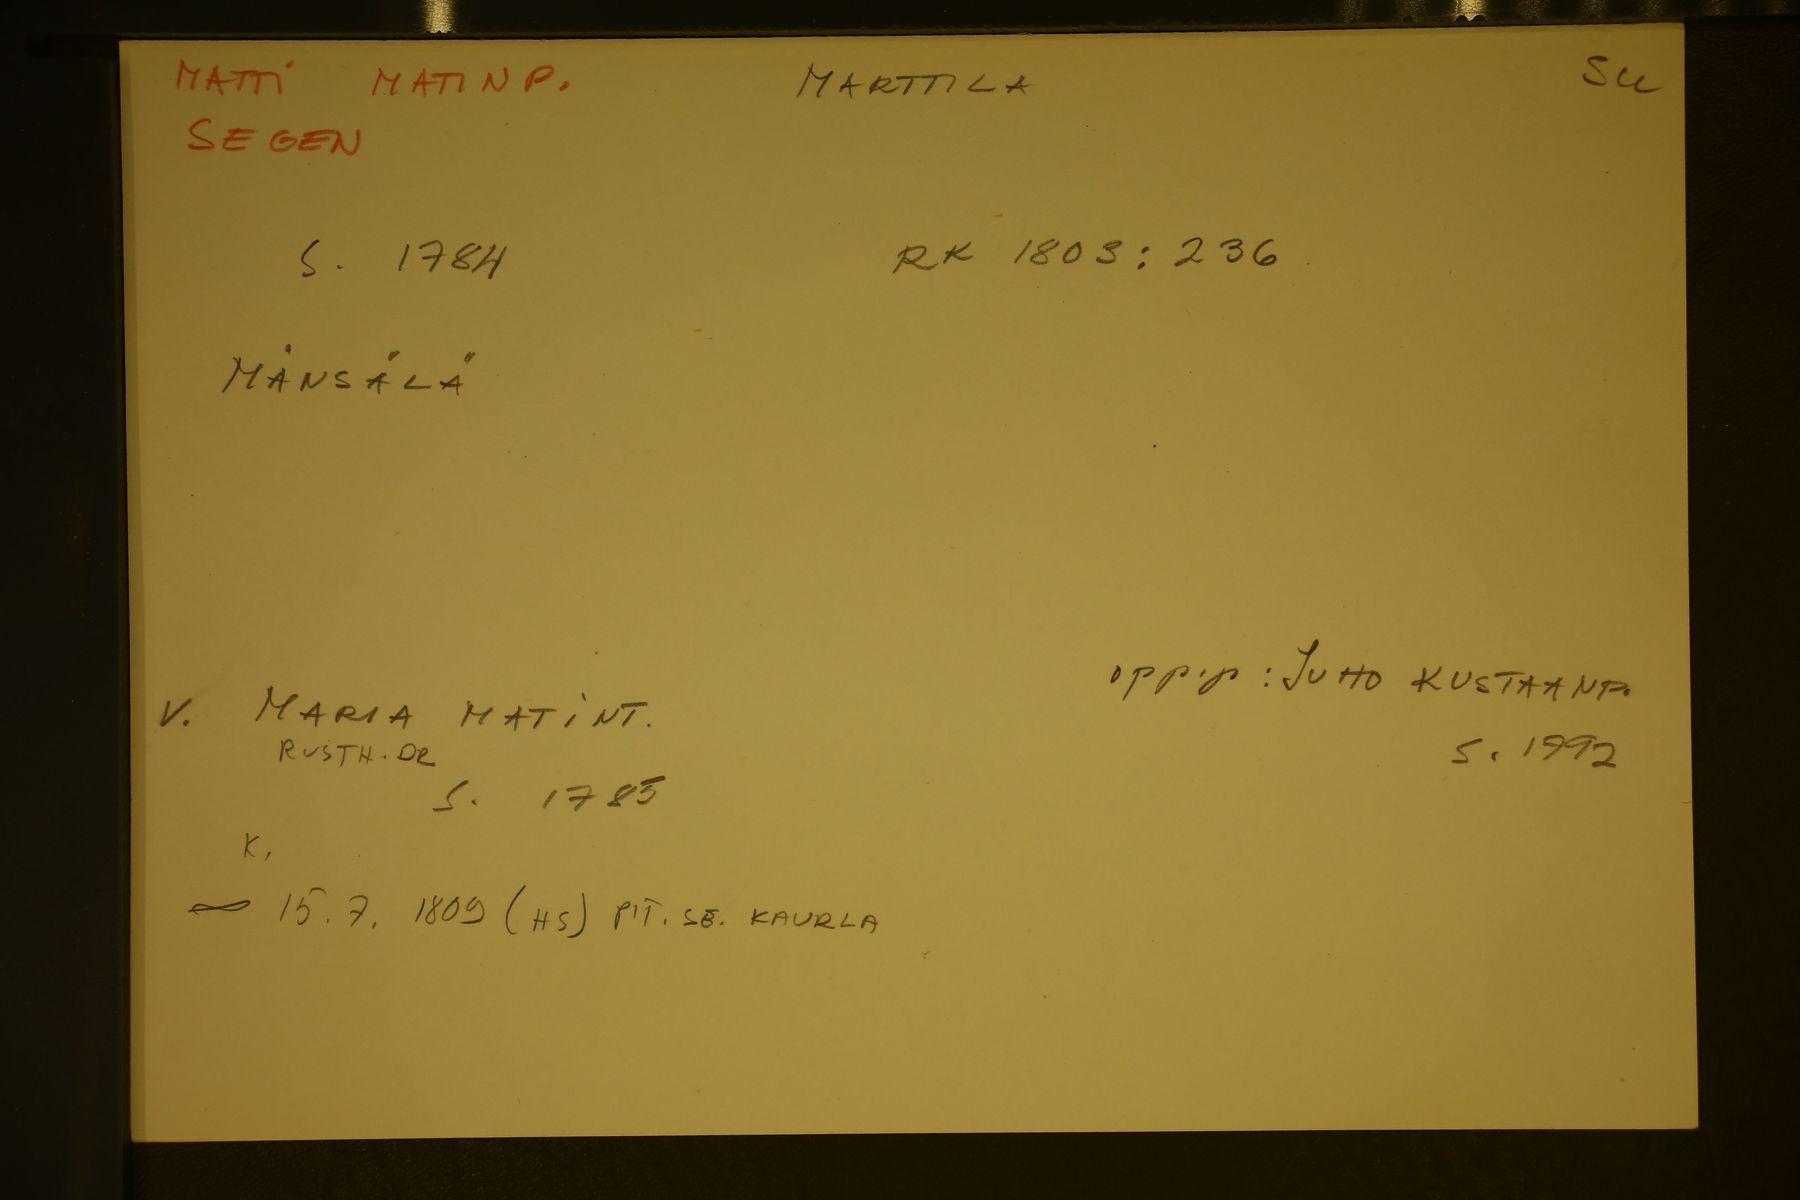 MATTI MATINP. MARTTILA SU
SEGEN
S. 1784 RK 1803:236
MÅNSÄLÄ
oppip: JUHO KUSTAANP.
V. MARIA MATINT.
RUSTH. DR S. 1792
S. 1785
K,
∞ 15.7.1809 (HS) PIT. SE. KAURLA